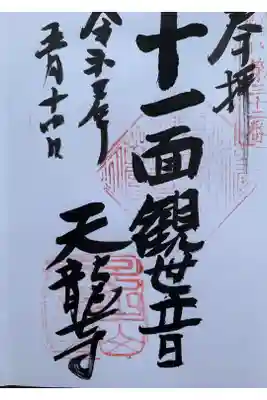 奉拝
十一面観世音
天龍寺
令和五年
五月十四日